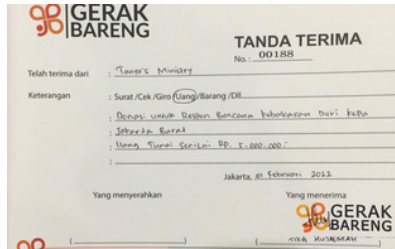 GERAK
BARENG
TANDA TERIMA
No.: 00188
Telah terima dari : Tango's Ministry
Keterangan : Surat /Cek /Giro /Uang/Barang /Dll
: Donasi untuk Respon Bencana kebakaran Duri kepa
: Jakarta Barat
: Uang Tunai Senilai RP. 5.000.000,-
:
Jakarta, 21 Februari 2022
Yang menyerahkan Yang menerima
GERAK
BARENG
( ) ( )